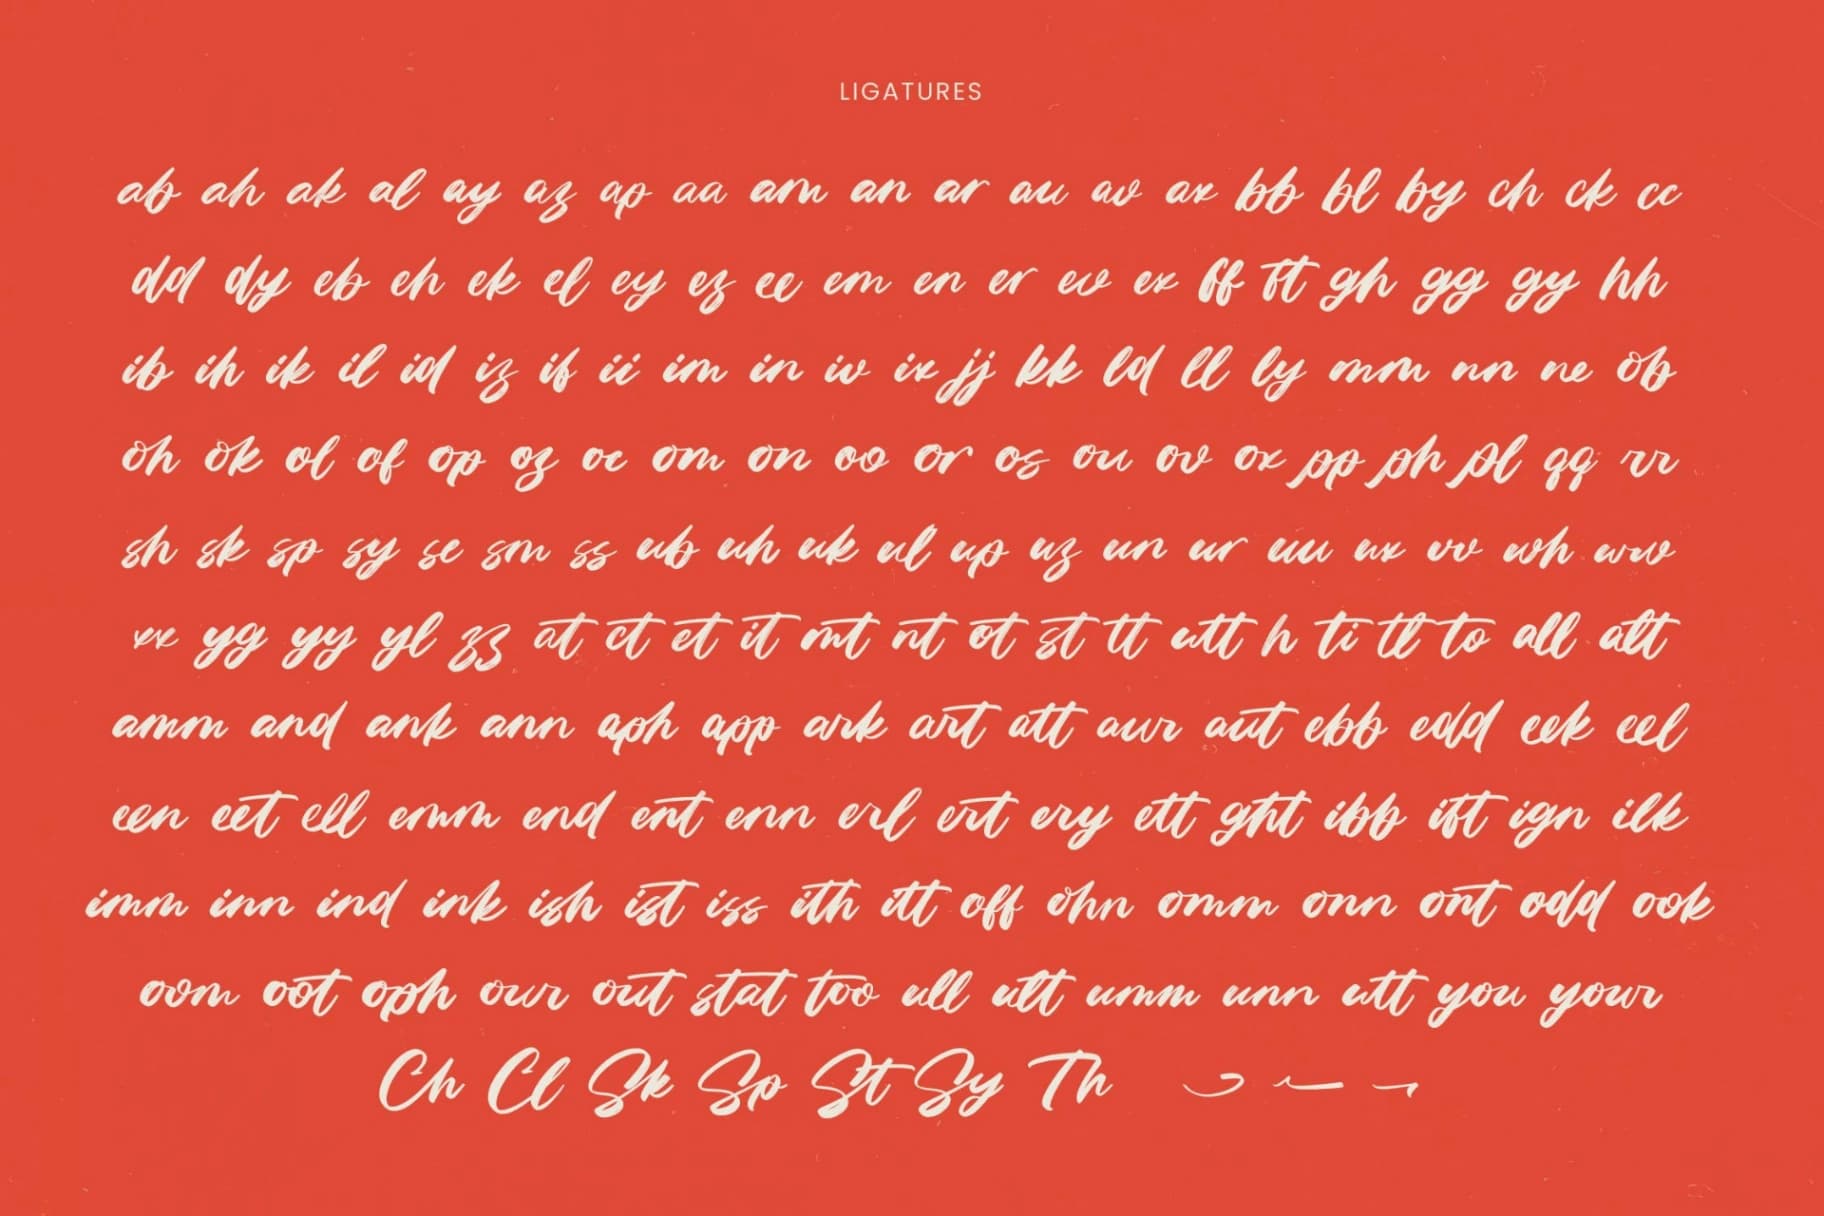 LIGATURES
ab ah ak al ay az ap aa am an ar au av ax bb bl by ch ck cc
dd dy eb eh ek el ey ez ee em en er ev ex ff tt gh gg gy hh
ib ih ik il id iz if ii im in iv ix jj kk ld ll ly mm nn ne ob
oh ok ol of op oz oc om on oo or os ou ov ox pp ph pl qq rr
sh sk sp sy se sm ss ub uh uk ul up uz un ur uu ux vv wh ww
xx yg yy yl zz at ct et it mt nt ot st tt utt h ti tl to all alt
amm and ank ann aph app ark art att aur aut ebb edd eek eel
een eet ell emm end ent enn erl ert ery ett ght ibb ift ign ilk
imm inn ind ink ish ist iss ith itt off ohn omm onn ont odd ook
oom oot oph our out stat too ull ult umm unn utt you your
Ch Cl Sk Sp St Sy Th